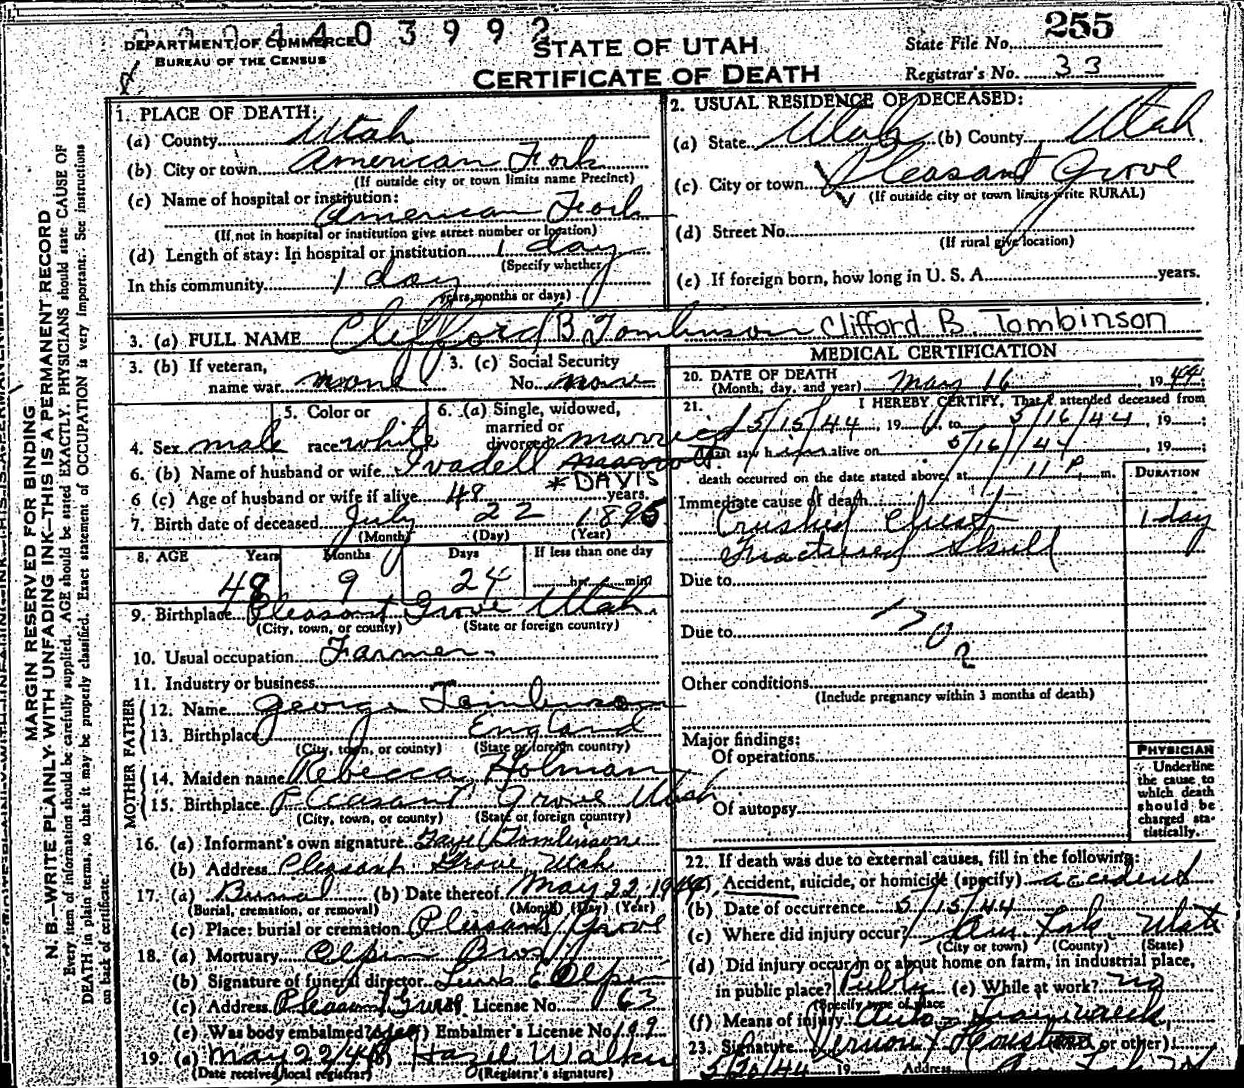 0004403992
255
DEPARTMENT OF COMMERCE
BUREAU OF THE CENSUS
STATE OF UTAH
CERTIFICATE OF DEATH
State File No.
Registrar's No. 33
MARGIN RESERVED FOR BINDING
N. B.—WRITE PLAINLY WITH UNFADING INK—THIS IS A PERMANENT RECORD
Every item of information should be carefully supplied. AGE should be stated EXACTLY. PHYSICIANS should state CAUSE OF
DEATH in plain terms, so that it may be properly classified. Exact statement of OCCUPATION is very important. See instructions
on back of certificate.
1. PLACE OF DEATH:
(a) County Utah
(b) City or town American Fork
(If outside city or town limits name Precinct)
(c) Name of hospital or institution:
American Fork
(If not in hospital or institution give street number or location)
(d) Length of stay: In hospital or institution 1 day
(Specify whether
In this community 1 day
years, months or days)
2. USUAL RESIDENCE OF DECEASED:
(a) State Utah (b) County Utah
(c) City or town Pleasant Grove
(If outside city or town limits write RURAL)
(d) Street No.
(If rural give location)
(e) If foreign born, how long in U. S. A. years.
3. (a) FULL NAME Clifford B Tomlinson Clifford B. Tombinson
3. (b) If veteran,
name war none
3. (c) Social Security
No. none
4. Sex male
5. Color or
race white
6. (a) Single, widowed,
married or
divorced married
6. (b) Name of husband or wife Ivadell
*DAVIS
6 (c) Age of husband or wife if alive 48 years.
7. Birth date of deceased July 22 1895
(Month) (Day) (Year)
8. AGE Years Months Days If less than one day
48 9 24 hr. min
9. Birthplace Pleasant Grove Utah
(City, town, or county) (State or foreign country)
10. Usual occupation Farmer
11. Industry or business
FATHER
12. Name George Tomlinson
13. Birthplace England
(City, town, or county) (State or foreign country)
MOTHER
14. Maiden name Rebecca Holman
15. Birthplace Pleasant Grove Utah
(City, town, or county) (State or foreign country)
16. (a) Informant's own signature Faye Tomlinson
(b) Address Pleasant Grove Utah
17. (a) Burial (b) Date thereof May 22 1944
(Burial, cremation, or removal) (Month) (Day) (Year)
(c) Place: burial or cremation Pleasant Grove
18. (a) Mortuary Olpin Bros
(b) Signature of funeral director Olpin
(c) Address Pleasant Grove License No. 63
(e) Was body embalmed? yes (f) Embalmer's License No. 199
19. (a) May 22/44 (b) Hazel Walker
(Date received local registrar) (Registrar's signature)
MEDICAL CERTIFICATION
20. DATE OF DEATH
(Month, day, and year) May 16, 1944
21. I HEREBY CERTIFY, That I attended deceased from
5/15/44, 19 to 5/16/44, 19
last saw him alive on 5/16/44, 19
death occurred on the date stated above, at 11 P m.
DURATION
Immediate cause of death
Crushed Chest 1 day
Fractured Skull
Due to
170
Due to
2
Other conditions
(Include pregnancy within 3 months of death)
Major findings:
Of operations
Of autopsy
PHYSICIAN
Underline
the cause to
which death
should be
charged sta-
tistically.
22. If death was due to external causes, fill in the following:
(a) Accident, suicide, or homicide (specify) accident
(b) Date of occurrence 5/15/44
(c) Where did injury occur? Am. Fork Utah
(City or town) (County) (State)
(d) Did injury occur in or about home on farm, in industrial place,
in public place? Public (e) While at work? no
(Specify type of place
(f) Means of injury Auto - Train wreck
23. Signature Vernon Houston or other)
5/20/44 19 Address Am Fork